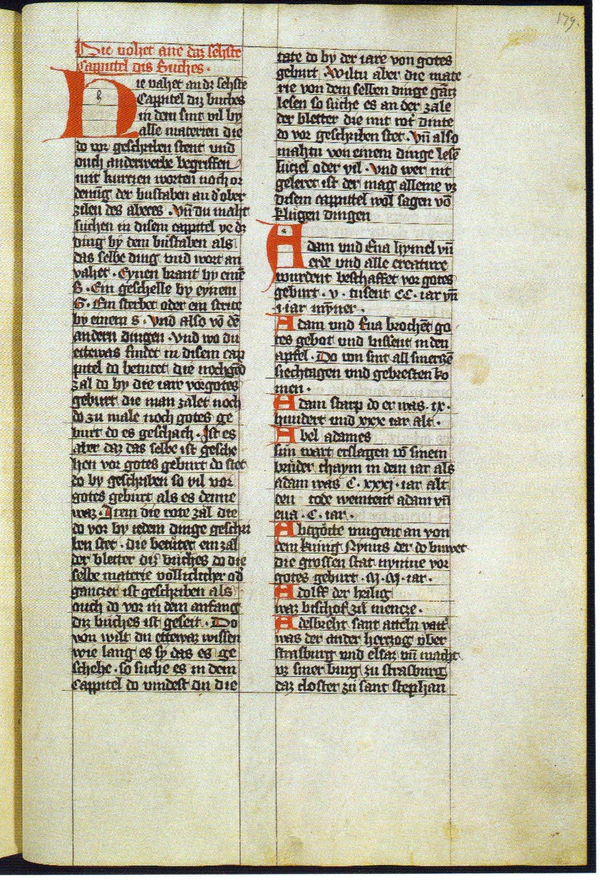 179.
Hie vohet ane daz sehste
cappitel dis Buches.
Hie vahet an dz sehste
Cappitel diz buches
in dem sint vil by
alle materien die
do vor geschriben stent und
ouch anderwerbe begriffen
mit kurzen worten noch or
denūg der bustaben an d' ober
zilen des abeces. Vn̄ du maht
suchen in disem cappitel ye dz
ding by dem bustaben als
das selbe ding und wort an
vahet. Eynen brant by eine
B. Ein geschelle by eynem
G. Ein sterbet oder ein strite
by einem s. und also vō dē
andern dingen. und wo du
ettewas findest in disem cap
pitel do betutet die
zal do by die iare vor gotes
geburt die man zalet noch
do zu male noch gotes ge
burt do es geschach. Ist es
aber daz das selbe ist gesche
hen vor gotes geburt do stet
do by geschriben so vil vor
gotes geburt als es denne
waz. Item die rote zal die
do vor by iedem dinge geschri
ben stet. die betutet ein zal
der bletter diz buches do die
selbe materie vollichlicher od
gantzer ist geschriben als
ouch do vor in dem anfang
diz buches ist geseit. Do
von wilt du ettewaz wissen
wie lang es sy das es ge
schehe. so suche es in dem
Cappitel do vindest du die
tate do by der iare von gotes
geburt. Wiltu aber die mate
rie von dem selben dinge gātz
lesen so suche es an der zale
der bletter die mit rot dinte
do vor geschriben stet. Vn̄ also
mahtu von einem dinge lesē
lutzel oder vil. Und wer nit
geleret ist der mag alleine vz
disem cappittel wol sagen vō
klugen dingen
Adam und Eva hymel vn̄
erde und alle creature
wurdent beschaffet vor gotes
geburt. v. tusent CC. iar vn̄
.i. iar mynre.
Adam und Eva brochēt go
tes gebot und bissent in den
apfel. Do von sint all smertzē
siechtagen und gebresten ko
men.
Adam starp do er was. ix.
hundert und xxx iar alt.
Abel adames
sun wart erslagen vō sinem
bruder chayin in dem iar als
adam was C. xxxj. iar alt
den tode weintent adam vn̄
eva. C. iar.
Abtgötte vingent an von
dem kunig Nynus der do buwet
die grossen stat nynive vor
gotes geburt. M. M. iar.
Adolff der heilig
waz bischof zu mentze.
Adelbreht sant atteln vatt'
was der ander hertzog uber
strasburg und elsaz vn̄ macht
vz siner burg zu strasburg
daz closter zu sant stephan